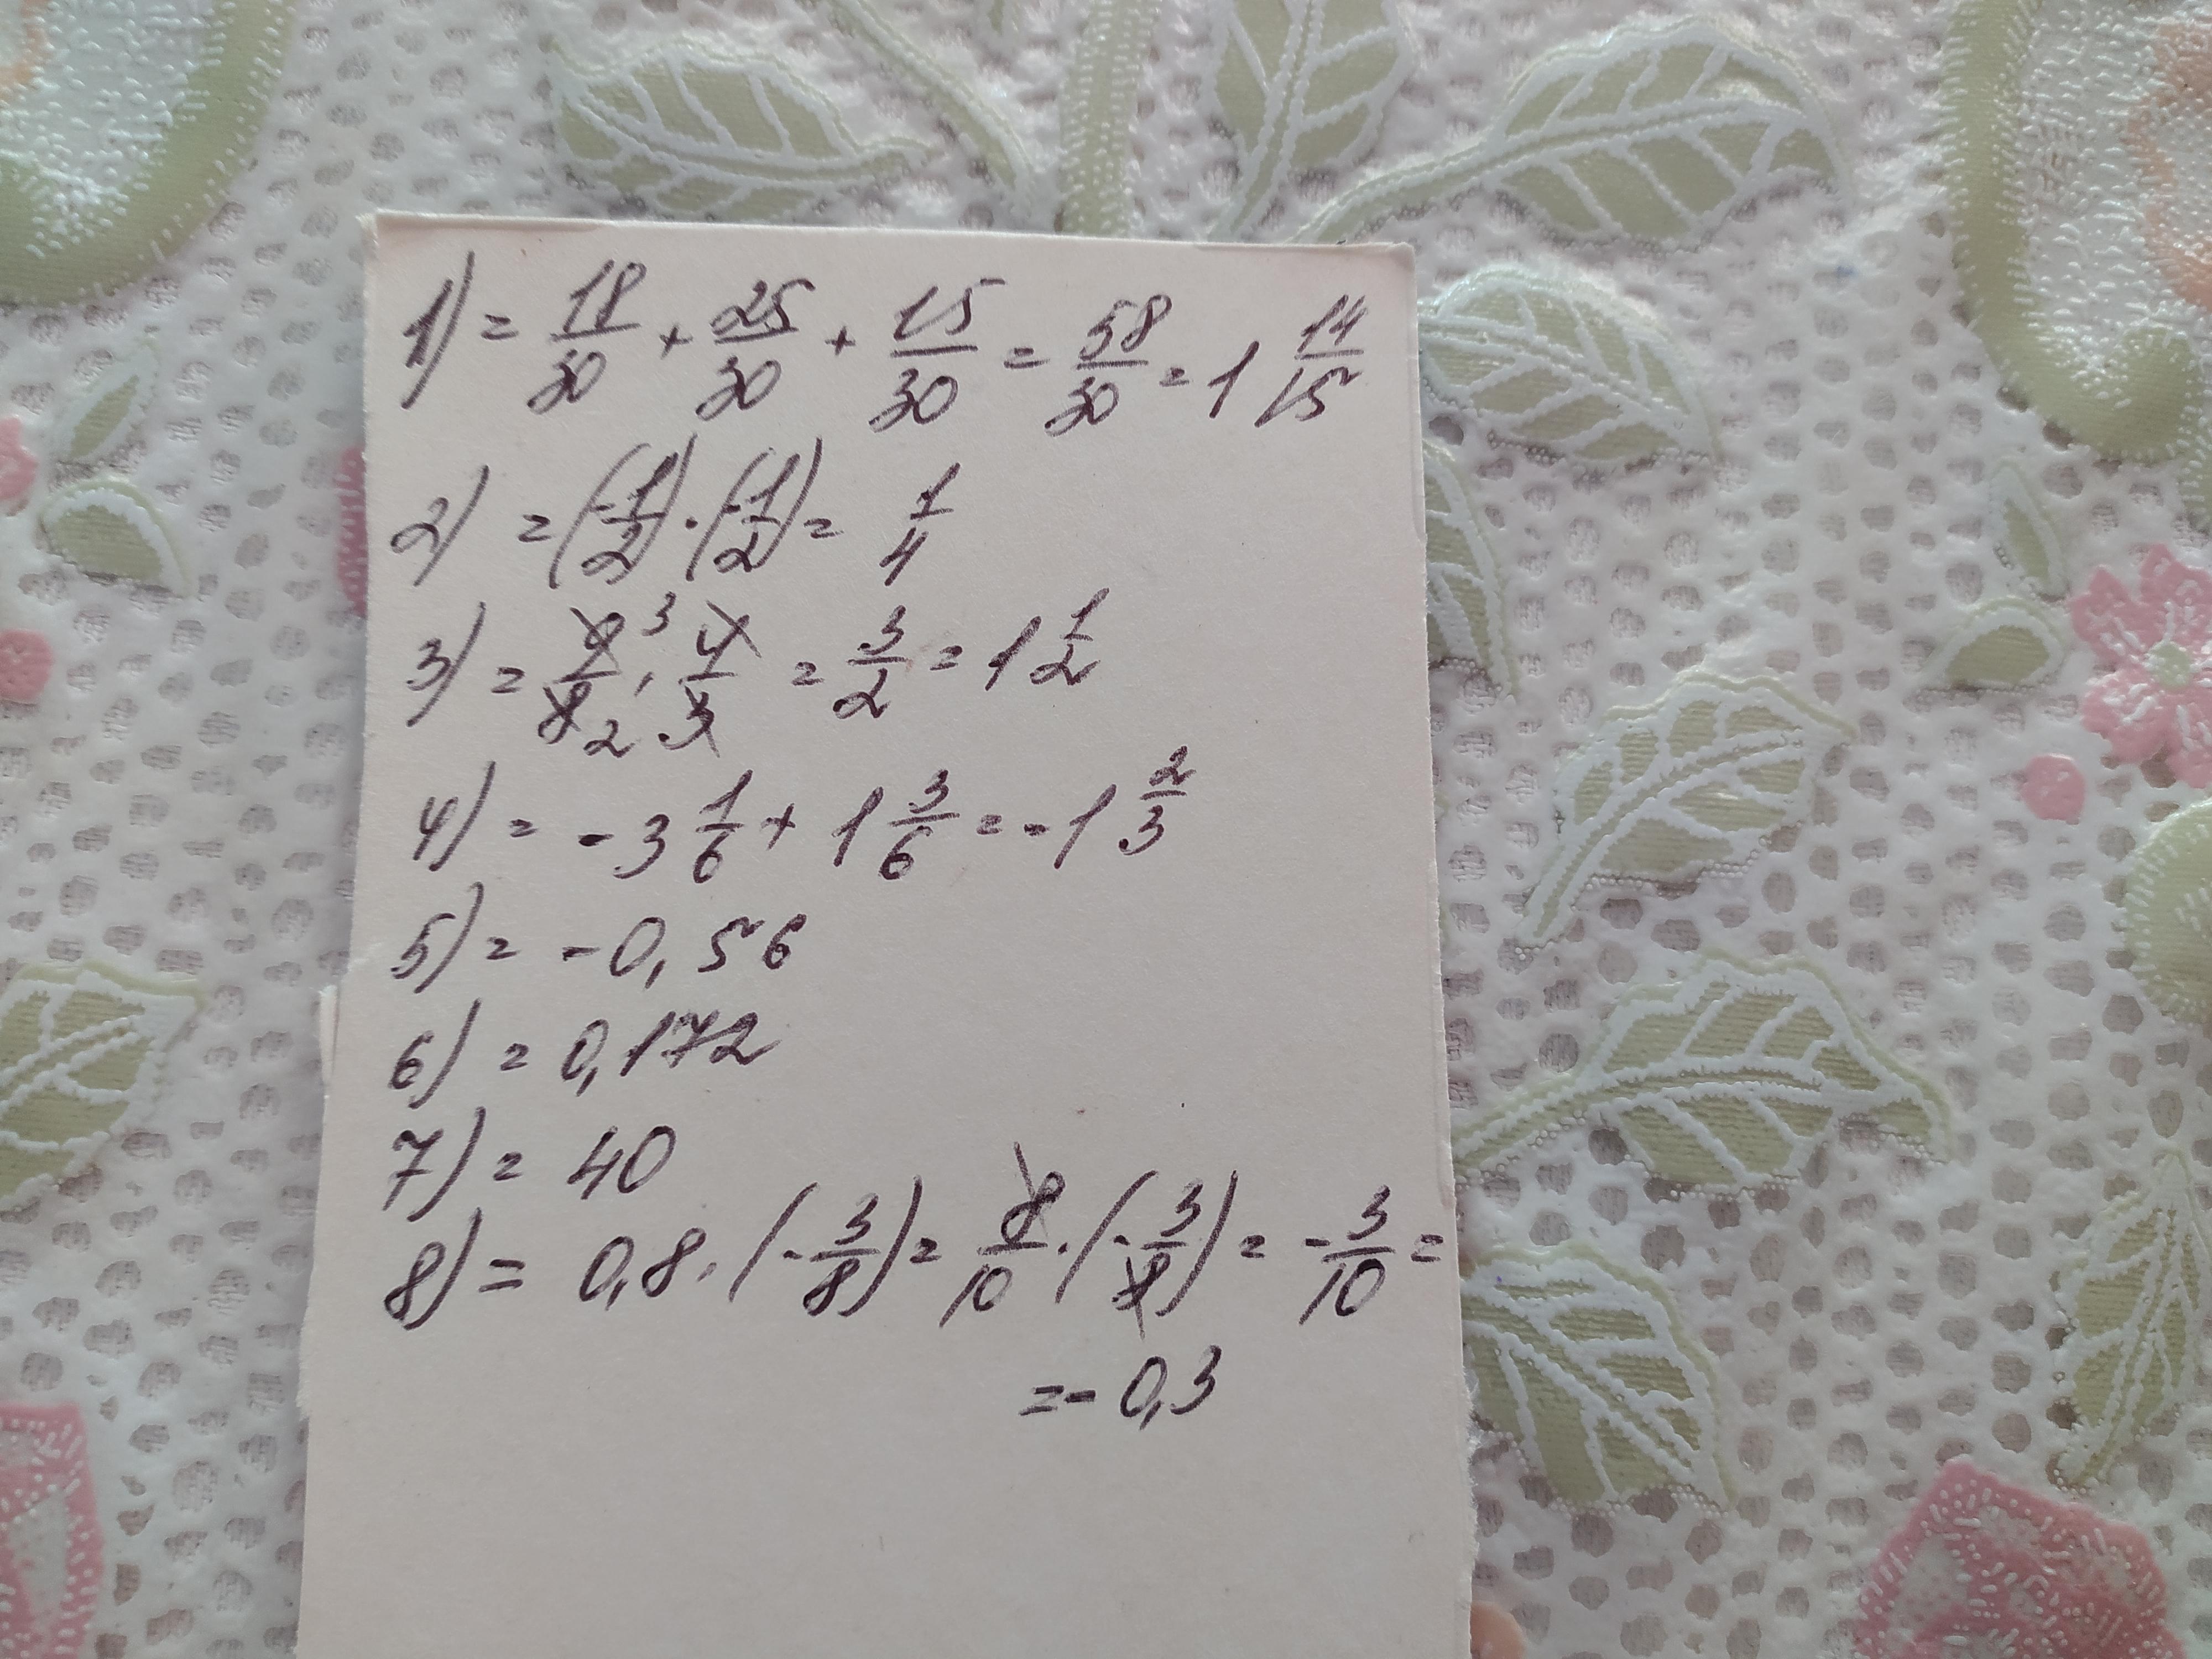 1) = 18/30 + 25/30 + 15/30 = 58/30 = 1 14/15
2) = (-1/2) · (-1/2) = 1/4
3) = 9/8 3/2 · 4/3 = 3/2 = 1 1/2
4) = -3 1/6 + 1 3/6 = -1 2/3
5) = -0,56
6) = 0,172
7) = 40
8) = 0,8 · (-3/8) = 8/10 · (-3/8) = -3/10 =
= -0,3